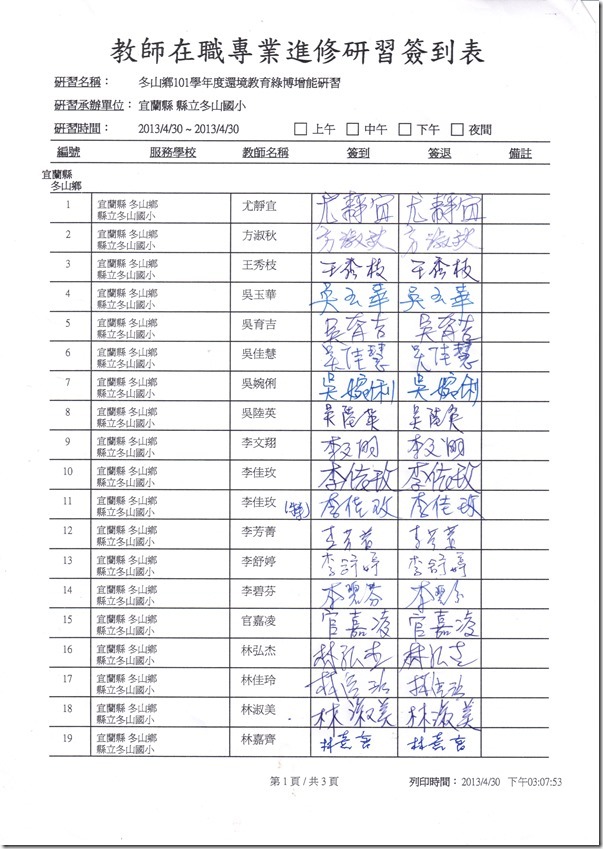 教師在職專業進修研習簽到表
研習名稱： 冬山鄉101學年度環境教育綠博增能研習
研習承辦單位： 宜蘭縣 縣立冬山國小
研習時間： 2013/4/30 ~ 2013/4/30 □ 上午 □ 中午 □ 下午 □ 夜間
編號 服務學校 教師名稱 簽到 簽退 備註
宜蘭縣
冬山鄉
1 宜蘭縣 冬山鄉 尤靜宜 尤靜宜 尤靜宜
縣立冬山國小
2 宜蘭縣 冬山鄉 方淑秋 方淑秋 方淑秋
縣立冬山國小
3 宜蘭縣 冬山鄉 王秀枝 王秀枝 王秀枝
縣立冬山國小
4 宜蘭縣 冬山鄉 吳玉華 吳玉華 吳玉華
縣立冬山國小
5 宜蘭縣 冬山鄉 吳育吉 吳育吉 吳育吉
縣立冬山國小
6 宜蘭縣 冬山鄉 吳佳慧 吳佳慧 吳佳慧
縣立冬山國小
7 宜蘭縣 冬山鄉 吳婉俐 吳婉俐 吳婉俐
縣立冬山國小
8 宜蘭縣 冬山鄉 吳陸英 吳陸英 吳陸英
縣立冬山國小
9 宜蘭縣 冬山鄉 李文翔 李文翔 李文翔
縣立冬山國小
10 宜蘭縣 冬山鄉 李佳玫 李佳玫 李佳玫
縣立冬山國小
11 宜蘭縣 冬山鄉 李佳玫 (特) 李佳玫 李佳玫
縣立冬山國小
12 宜蘭縣 冬山鄉 李芳菁 李芳菁 李芳菁
縣立冬山國小
13 宜蘭縣 冬山鄉 李舒婷 李舒婷 李舒婷
縣立冬山國小
14 宜蘭縣 冬山鄉 李碧芬 李碧芬 李碧芬
縣立冬山國小
15 宜蘭縣 冬山鄉 官嘉凌 官嘉凌 官嘉凌
縣立冬山國小
16 宜蘭縣 冬山鄉 林弘杰 林弘杰 林弘杰
縣立冬山國小
17 宜蘭縣 冬山鄉 林佳玲 林佳玲 林佳玲
縣立冬山國小
18 宜蘭縣 冬山鄉 林淑美 林淑美 林淑美
縣立冬山國小
19 宜蘭縣 冬山鄉 林嘉齊 林嘉齊 林嘉齊
縣立冬山國小
第 1 頁 / 共 3 頁 列印時間：2013/4/30 下午03:07:53